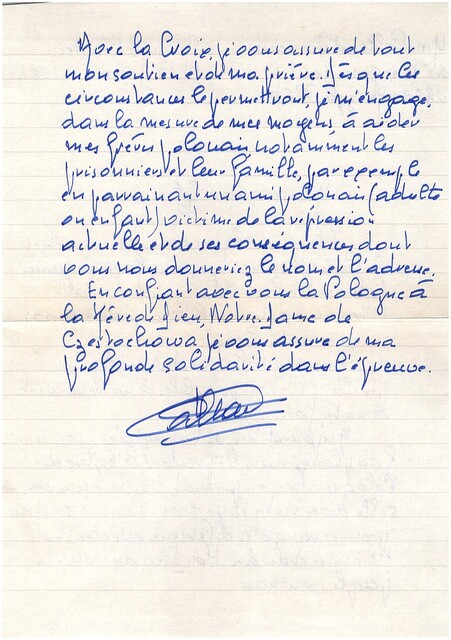 Avec la Croix, je vous assure de tout
mon soutien et de ma prière. Dès que les
circonstances le permettront, je m'engage,
dans la mesure de mes moyens à aider
mes frères polonais notamment les
prisonniers et leur famille, par exemple
en parrainant un ami polonais (adulte
ou enfant) victime de la répression
actuelle et de ses conséquences dont
vous nous donneriez le nom et l'adresse.
En confiant avec vous la Pologne à
la Mère de Dieu, Notre-Dame de
Czestochowa je vous assure de ma
profonde solidarité dans l'épreuve.